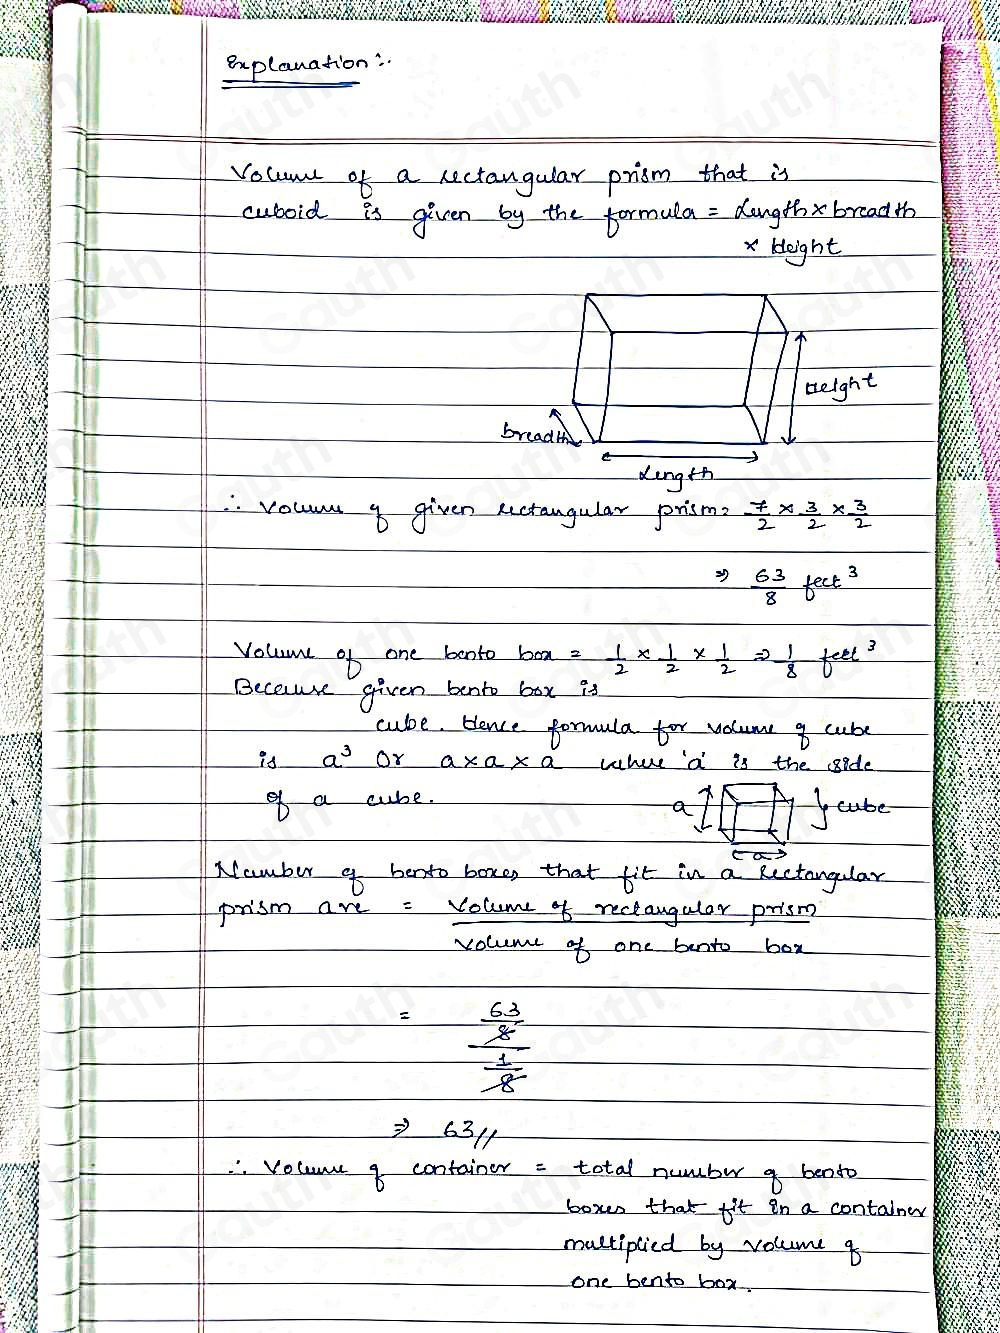 Explanation :-
Volume of a rectangular prism that is
cuboid is given by the formula = Length × breadth
× Height
Height
breadth
Length
∴ Volume of given rectangular prism = 7/2 × 3/2 × 3/2
⇒ 63/8 feet³
Volume of one bento box = 1/2 × 1/2 × 1/2 ⇒ 1/8 feet³
Because given bento box is
cube. Hence formula for volume of cube
is a³ Or a × a × a where 'a' is the side
of a cube.
a
cube
a
Number of bento boxes that fit in a rectangular
prism are = Volume of rectangular prism
Volume of one bento box
= 63/8
1/8
⇒ 63//
∴ Volume of container = total number of bento
boxes that fit in a container
multiplied by volume of
one bento box.